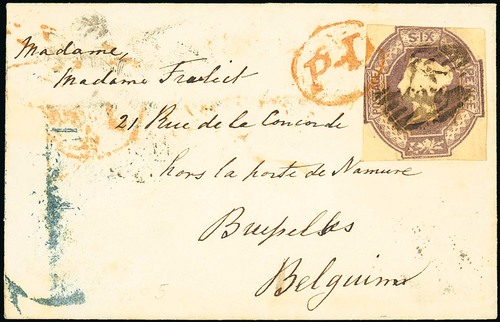 Madame,
Madame Fraliet
21 Rue de la Concorde
hors la porte de Namure
Bruxelles
Belguim
P.D.
SIX